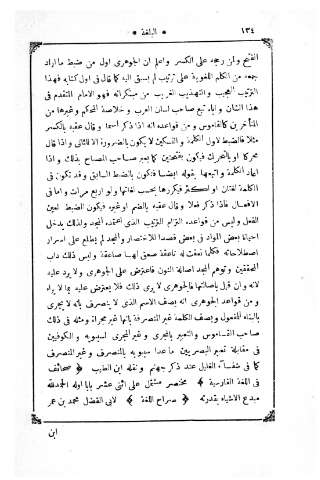 ١٣٤ • البلغة •
الفتيح وابن رجبه على الكسر واعلم ان الجوهرى اول من ضبط ما اراد
جمعه من الكلم اللغوية على ترتيب لم يسبق اليه كما قال فى اول كتابه فهذا
الترتيب العجيب والتهذيب الغريب من مبتكراته فهو الامام المتقدم فى
هذا الشان واياه تبع صاحب لسان العرب و خلاصة المحكم وغيرها من
المتأخرين كالقاموس و من قواعده انه اذا ذكر اسما و قال عقبه بالكسر
مثلا فالضبط لاول الكلمة والتسكين لا يكون بالضرورة الا للثانى واذا قال
محركا او بالتحريك فيكون بفتحتين كما يعبر صاحب المصباح بذلك و اذا
ابهم الكلمة و اتبعها بقوله ايضا فيكون بالضبط السابق و قد تكون فى
الكلمة لغتان او اكثر فيكررها بحسب لغاتها ولو اربع مرات و اما فى
الافعال فاذا ذكر فعلا و قال عقبه بالضم او غيره فيكون الضبط لعين
الفعل وليس من قواعده التزام الترتيب الذى اعتمده المجد ولذلك يدخل
احيانا بعض المواد فى بعض قصدا للاختصار والمجد لم يطلع على اسرار
اصطلاحاته فكلما نعقت له ناعقة صعق لها صاعقة و ليس ذلك داب
المحققين و توهم المجد اصالة النون فاعترض على الجوهرى و لا يرد عليه
لانه وان قيل باصالتها فالجوهرى لا يرى ذلك فلا يعترض عليه بما لا يراه
و من قواعد الجوهرى انه يصف الاسم الذى لا ينصرف بانه لا يجرى
بالبناء للمفعول و يصف الكلمة غير المنصرفة بانها غير مجراة ومثله فى ذلك
صاحب القاموس والتعبير بالمجرى و غير المجرى لسيبويه و الكوفيين
فى مقابلة تعبير البصريين ما عدا سيبويه بالمنصرف و غير المنصرف
كما فى شفاء الغليل عند ذكر جهنم ونقله ابن الطيب ﴿ صحائف
فى اللغة الفارسية ﴾ مختصر مشتمل على اثنى عشر بابا اوله الحمد لله
مبدع الاشياء بقدرته ﴿ صراح اللغة ﴾ لابى الفضل محمد بن عمر
ابن